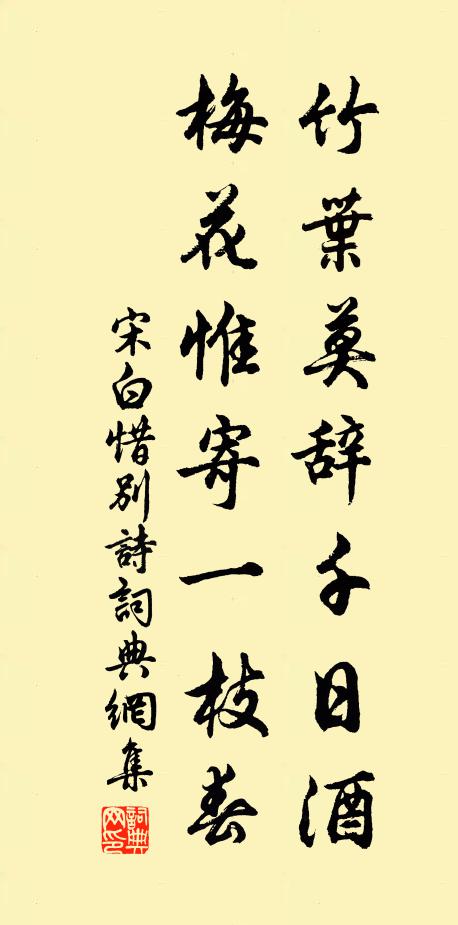 竹葉莫辞千日酒
梅花惟寄一枝春
宋白惜别詩詞典網集
詞典网印